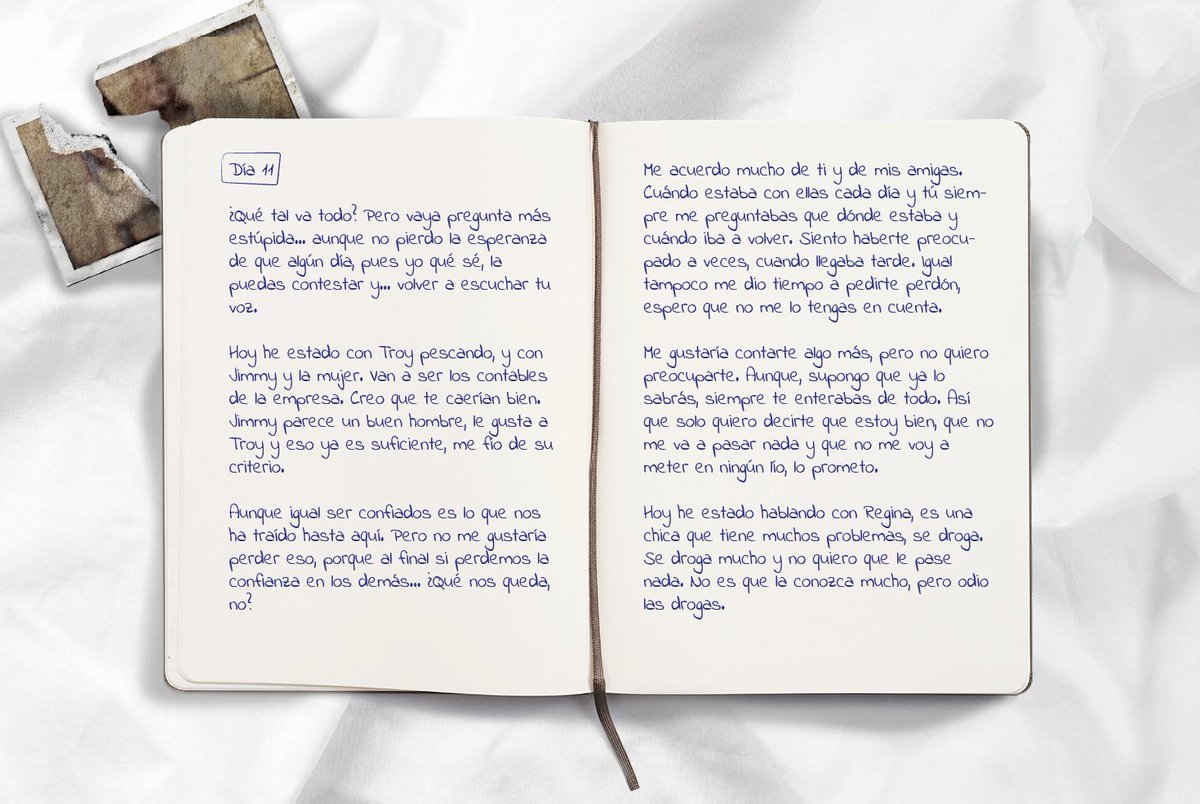 Día 11
¿Qué tal va todo? Pero vaya pregunta más
estúpida... aunque no pierdo la esperanza
de que algún día, pues yo qué sé, la
puedas contestar y... volver a escuchar tu
voz.
Hoy he estado con Troy pescando, y con
Jimmy y la mujer. Van a ser los contables
de la empresa. Creo que te caerían bien.
Jimmy parece un buen hombre, le gusta a
Troy y eso ya es suficiente, me fío de su
criterio.
Aunque igual ser confiados es lo que nos
ha traído hasta aquí. Pero no me gustaría
perder eso, porque al final si perdemos la
confianza en los demás... ¿Qué nos queda,
no?
Me acuerdo mucho de ti y de mis amigas.
Cuándo estaba con ellas cada día y tú siem-
pre me preguntabas que dónde estaba y
cuándo iba a volver. Siento haberte preocu-
pado a veces, cuando llegaba tarde. Igual
tampoco me dio tiempo a pedirte perdón,
espero que no me lo tengas en cuenta.
Me gustaría contarte algo más, pero no quiero
preocuparte. Aunque, supongo que ya lo
sabrás, siempre te enterabas de todo. Así
que solo quiero decirte que estoy bien, que no
me va a pasar nada y que no me voy a
meter en ningún lío, lo prometo.
Hoy he estado hablando con Regina, es una
chica que tiene muchos problemas, se droga.
Se droga mucho y no quiero que le pase
nada. No es que la conozca mucho, pero odio
las drogas.